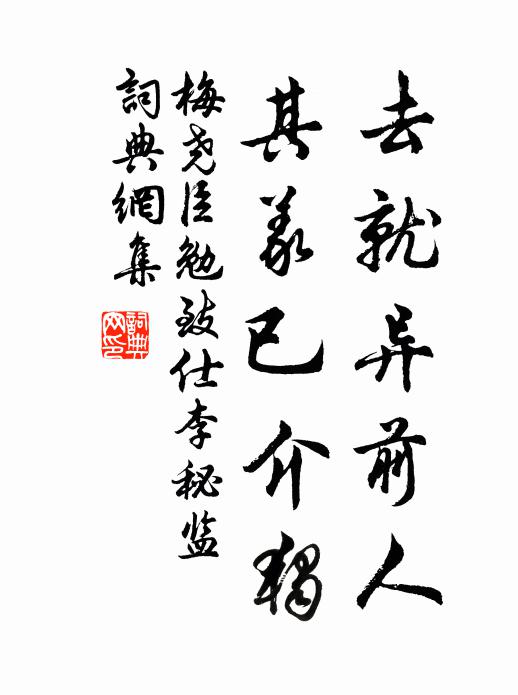 去就异前人
其義已介獨
梅尧臣勉致仕李秘监
詞典網集
詞典網印